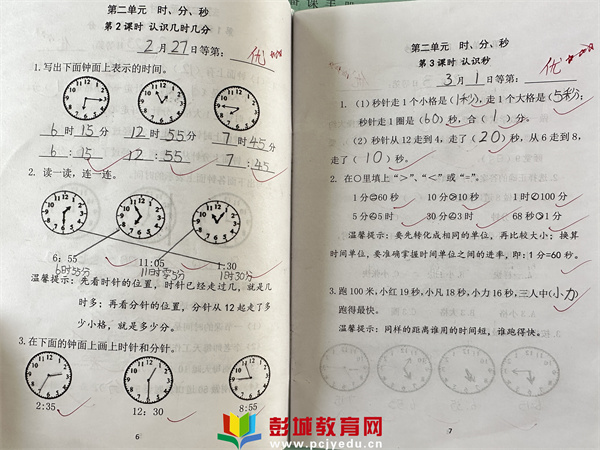 第二单元 时、分、秒
第2课时 认识几时几分
2月27日等第：优
1.写出下面钟面上表示的时间。
6时15分 12时55分 7时45分
6：15 12：55 7：45
2. 读一读，连一连。
6：55 11:05 1:30
6时55分 11时零5分 1时30分
温馨提示：先看时针的位置，时针已经走过几，就是几
时多；再看分针的位置，分针从12起走了多
少小格，就是多少分。
3.在下面的钟面上画上时针和分针。
2:35 12：30 8:55
6
第二单元 时、分、秒
第3课时 认识秒
3月1日等第：优
1.（1）秒针走1个小格是（1秒），走1个大格是（5秒）；
秒针走1圈是（60）秒，合（1）分。
（2）秒针从12走到4，走了（20）秒，从6走到8，
走了（10）秒。
2. 在○里填上“>”、“<”或“=”。
1分=60秒 10分 10秒 1时 100分
5分 5时 10分 3时 68秒 1分
温馨提示：要先转化成相同的单位，再比较大小；换算
时间单位，要准确掌握时间单位之间的进率，即：1分=60秒。
3.跑100米，小红19秒，小凡18秒，小力16秒，三人中（小力）
跑得最快。
温馨提示：同样的距离谁用的时间短，谁跑得快。
7
彭城教育网
www.pcjyedu.cn